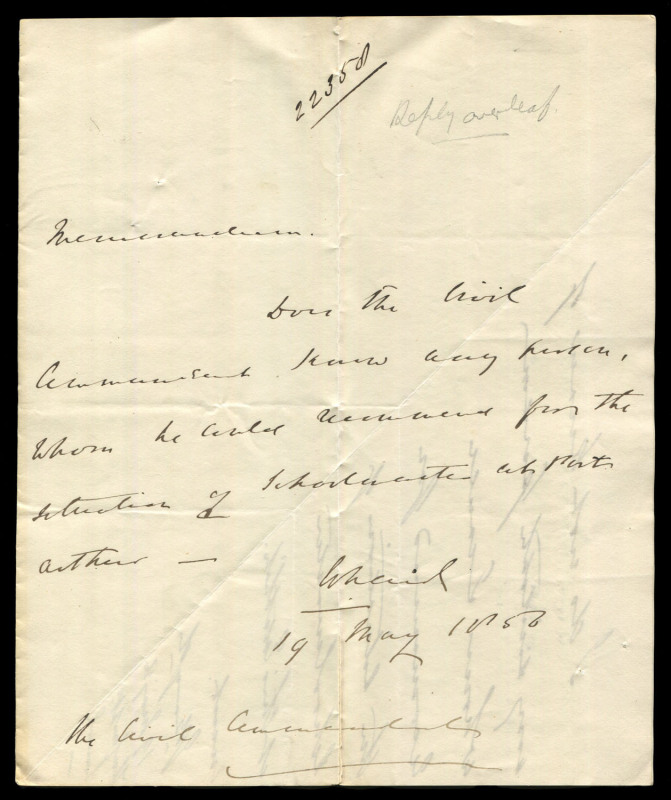 22358
Reply overleaf.
Memorandum.
Does the Civil
Commandant know any person,
whom he could recommend for the
situation of Schoolmaster at Port
arthur —
19 May 1856
The Civil Commandant